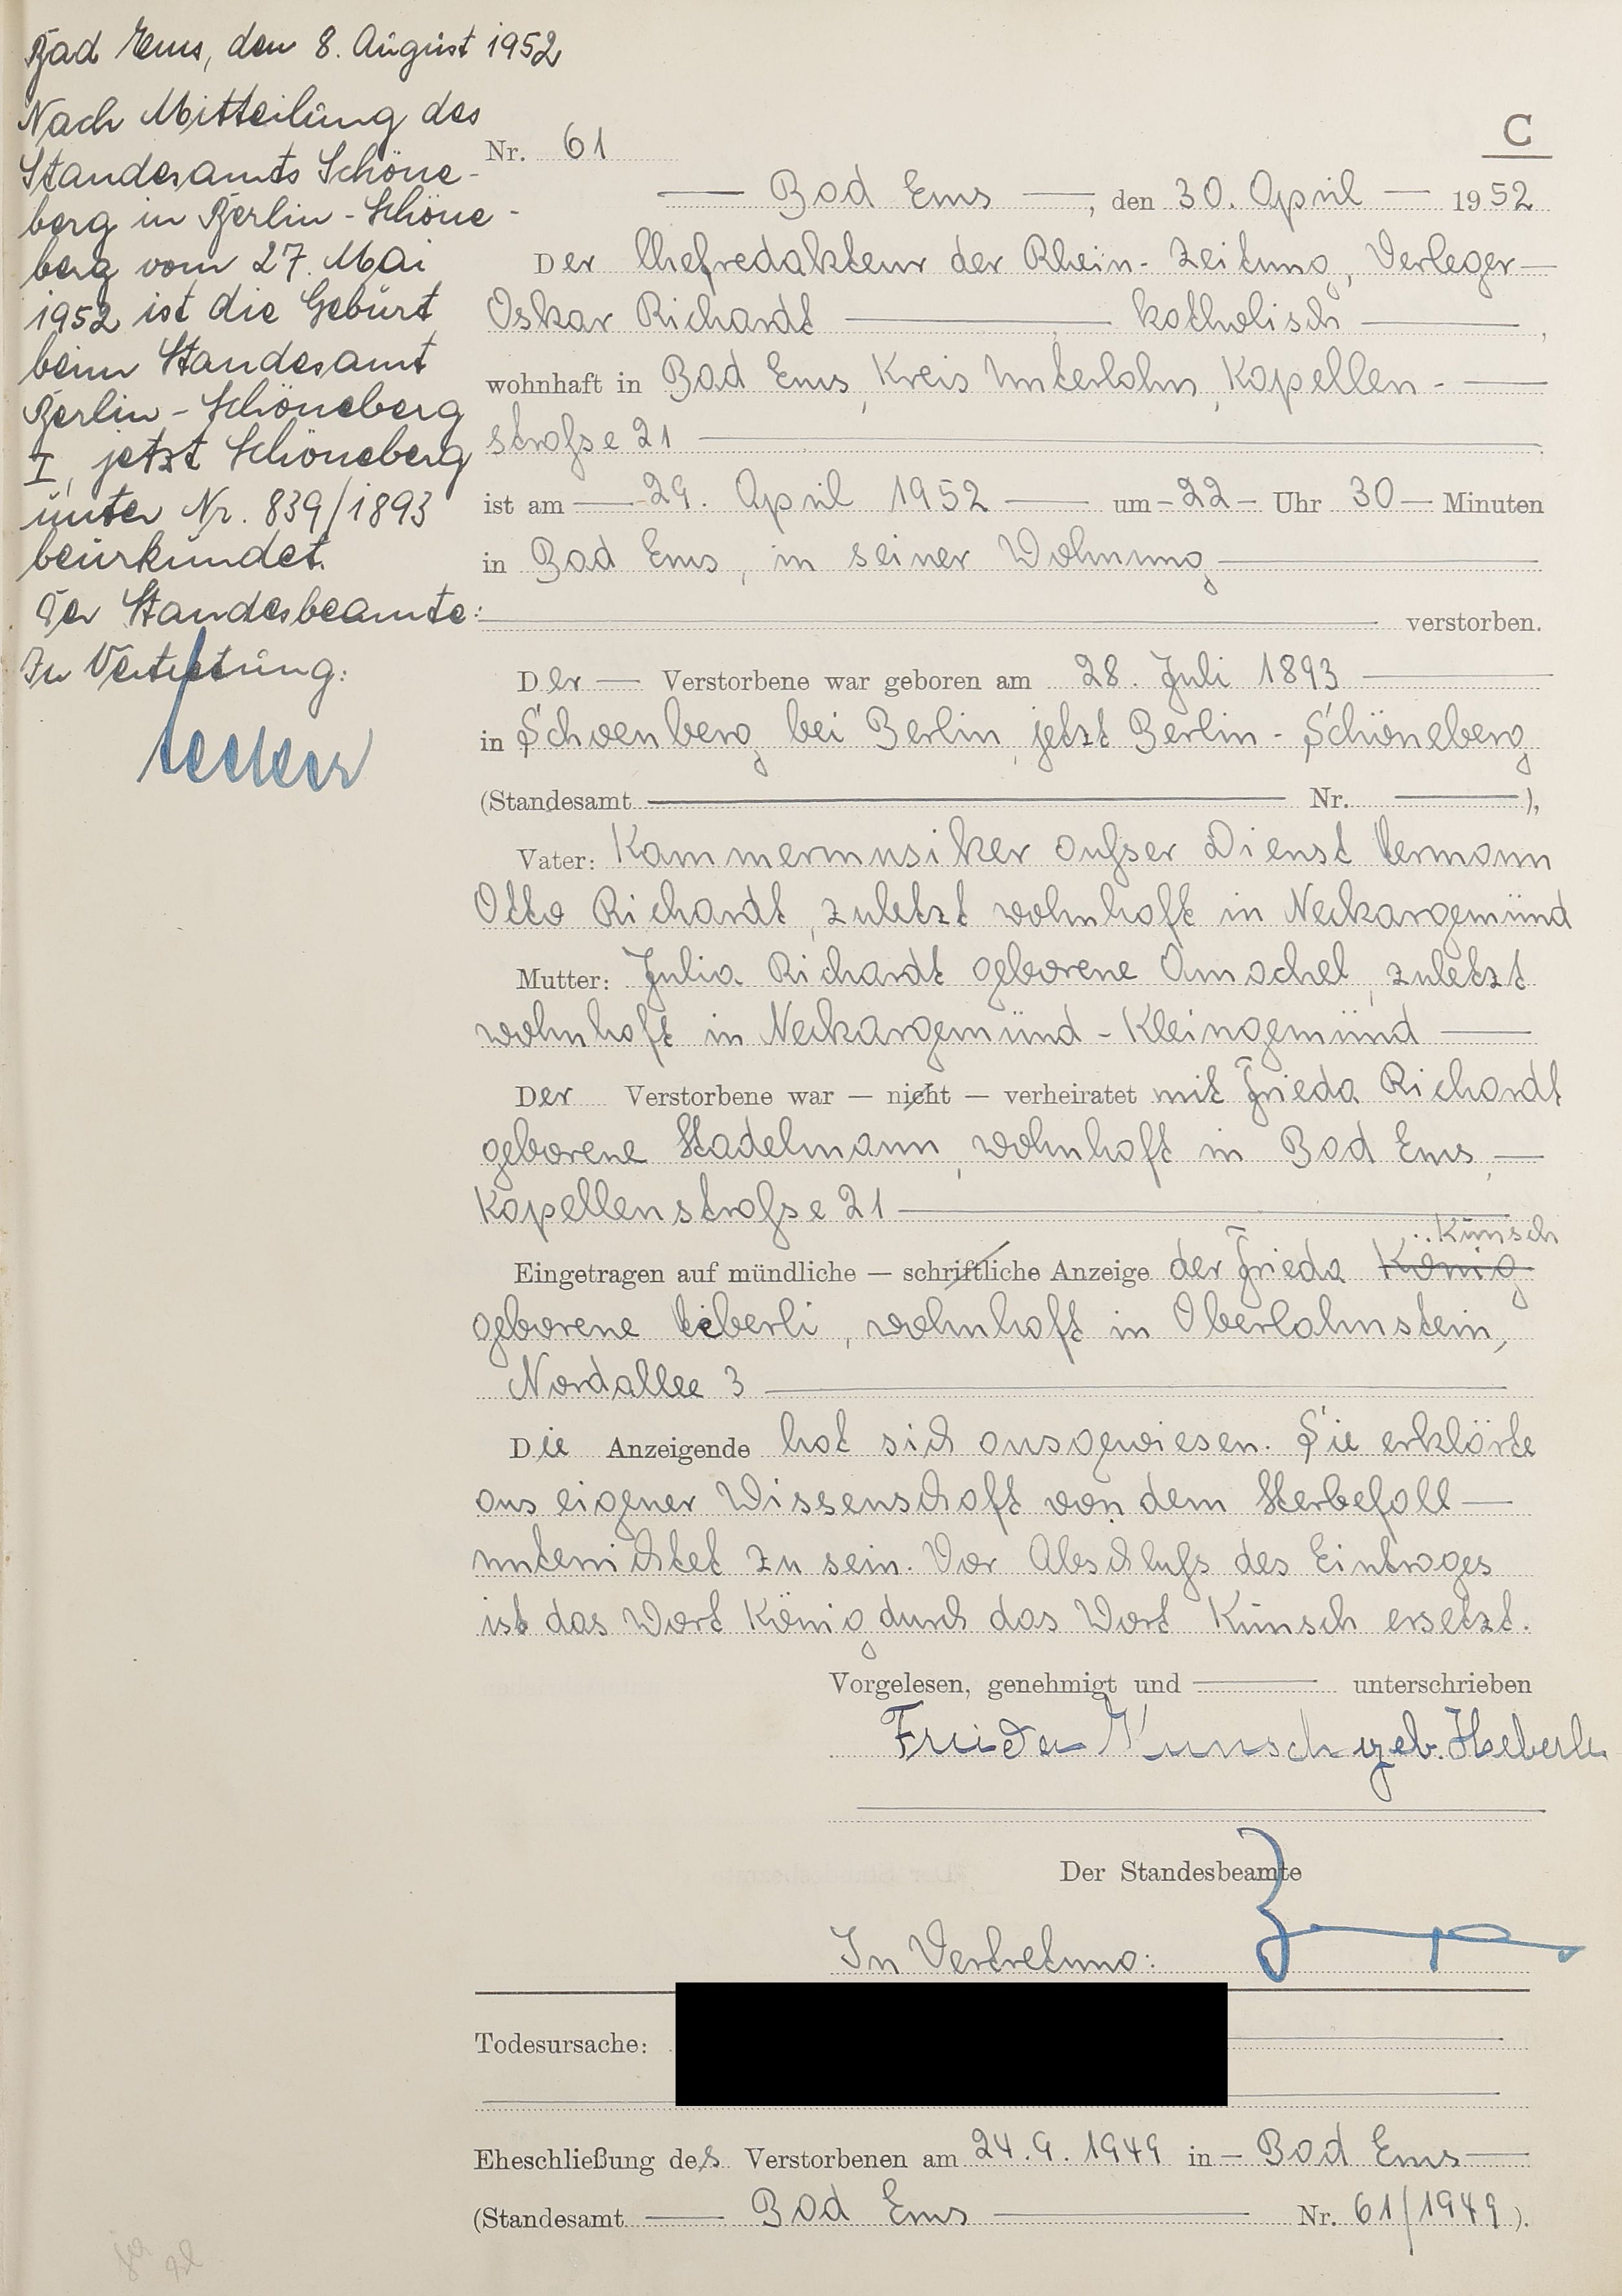 Bad Ems, den 8. August 1952
Nach Mitteilung des
Standesamts Schöne-
berg in Berlin-Schöne-
berg vom 27. Mai
1952 ist die Geburt
beim Standesamt
Berlin-Schöneberg
I, jetzt Schöneberg
unter Nr. 839/1893
beurkundet.
Der Standesbeamte:
In Vertretung:
C
Nr. 61
Bad Ems, den 30. April 1952
Der Chefredakteur der Rhein-Zeitung, Verleger
Oskar Richardt, katholisch,
wohnhaft in Bad Ems, Kreis Unterlahn, Kapellen-
straße 21
ist am 29. April 1952 um 22 Uhr 30 Minuten
in Bad Ems, in seiner Wohnung
verstorben.
Der Verstorbene war geboren am 28. Juli 1893
in Schoenberg bei Berlin, jetzt Berlin-Schöneberg
(Standesamt Nr. ),
Vater: Kammermusiker außer Dienst Hermann
Otto Richardt, zuletzt wohnhaft in Neckargemünd
Mutter: Julia Richardt geborene Amschel, zuletzt
wohnhaft in Neckargemünd-Kleingemünd
Der Verstorbene war — nicht — verheiratet mit Frieda Richardt
geborene Stadelmann, wohnhaft in Bad Ems,
Kapellenstraße 21
Kunsch
Eingetragen auf mündliche — schriftliche Anzeige der Frieda König
geborene Heberli, wohnhaft in Oberlahnstein,
Nordallee 3
Die Anzeigende hat sich ausgewiesen. Sie erklärte
aus eigener Wissenschaft von dem Sterbefall
unterrichtet zu sein. Vor Abschluß des Eintrages
ist das Wort König durch das Wort Kunsch ersetzt.
Vorgelesen, genehmigt und unterschrieben
Frieda Kunsch geb. Heberle
Der Standesbeamte
In Vertretung:
Todesursache:
Eheschließung des Verstorbenen am 24.9.1949 in Bad Ems
(Standesamt Bad Ems Nr. 61/1949).